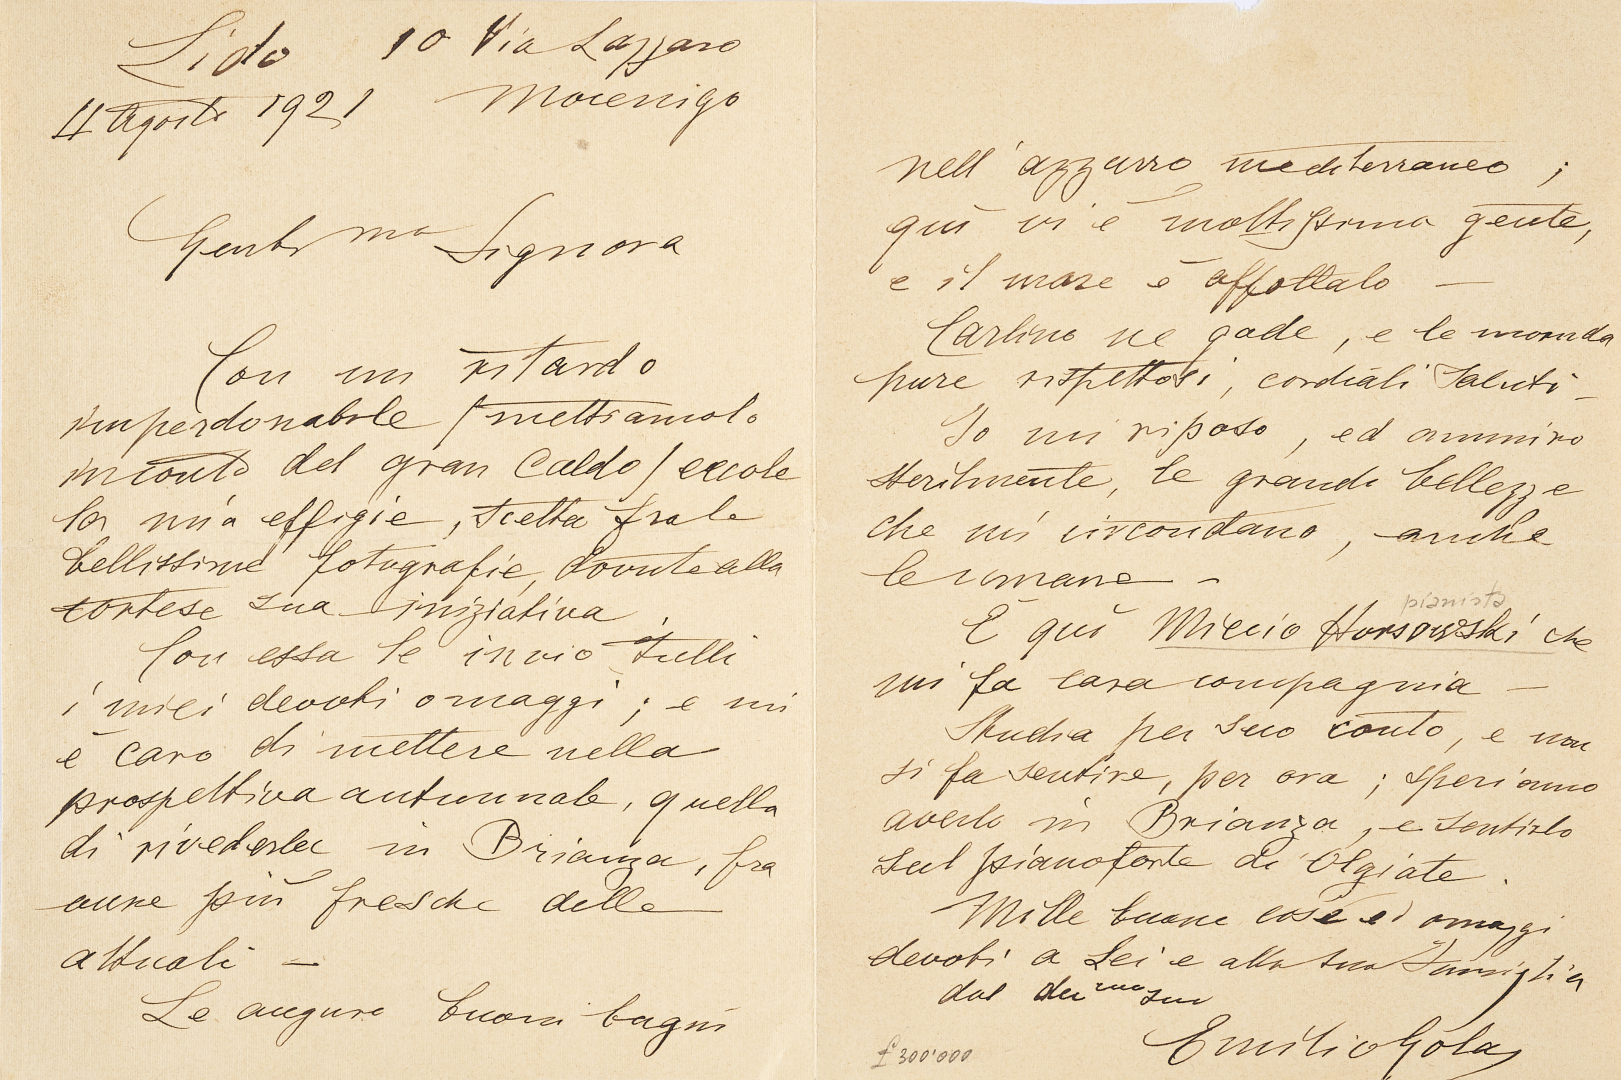 Lido 10 Via Lazzaro
4 Agosto 1921 Mocenigo
Gentis ma Signora
Con un ritardo
imperdonabile / mettiamolo
in conto del gran caldo / eccole
la mia effigie, scelta fra le
bellissime fotografie, dovute alla
cortese sua iniziativa.
Con essa le invio tutti
i miei devoti omaggi; e mi
è caro di mettere nella
prospettiva autunnale, quella
di rivederla in Brianza, fra
aure più fresche delle
attuali —
Le auguro buoni bagni
nell'azzurro mediterraneo;
qui vi è moltissima gente,
e il mare è affollato —
Carlino ne gode, e le manda
pure rispettosi, cordiali saluti —
Io mi riposo, ed ammiro
sterilmente, le grandi bellezze
che mi circondano, anche
le umane —
pianista
È qui Miecio Horsowski che
mi fa cara compagnia —
Studia per suo conto, e non
si fa sentire, per ora; speriamo
averlo in Brianza, e sentirlo
sul pianoforte di Olgiate.
Mille buone cose ed omaggi
devoti a Lei e alla sua Famiglia
dal dev mo suo
Emilio Gola
£ 300'000